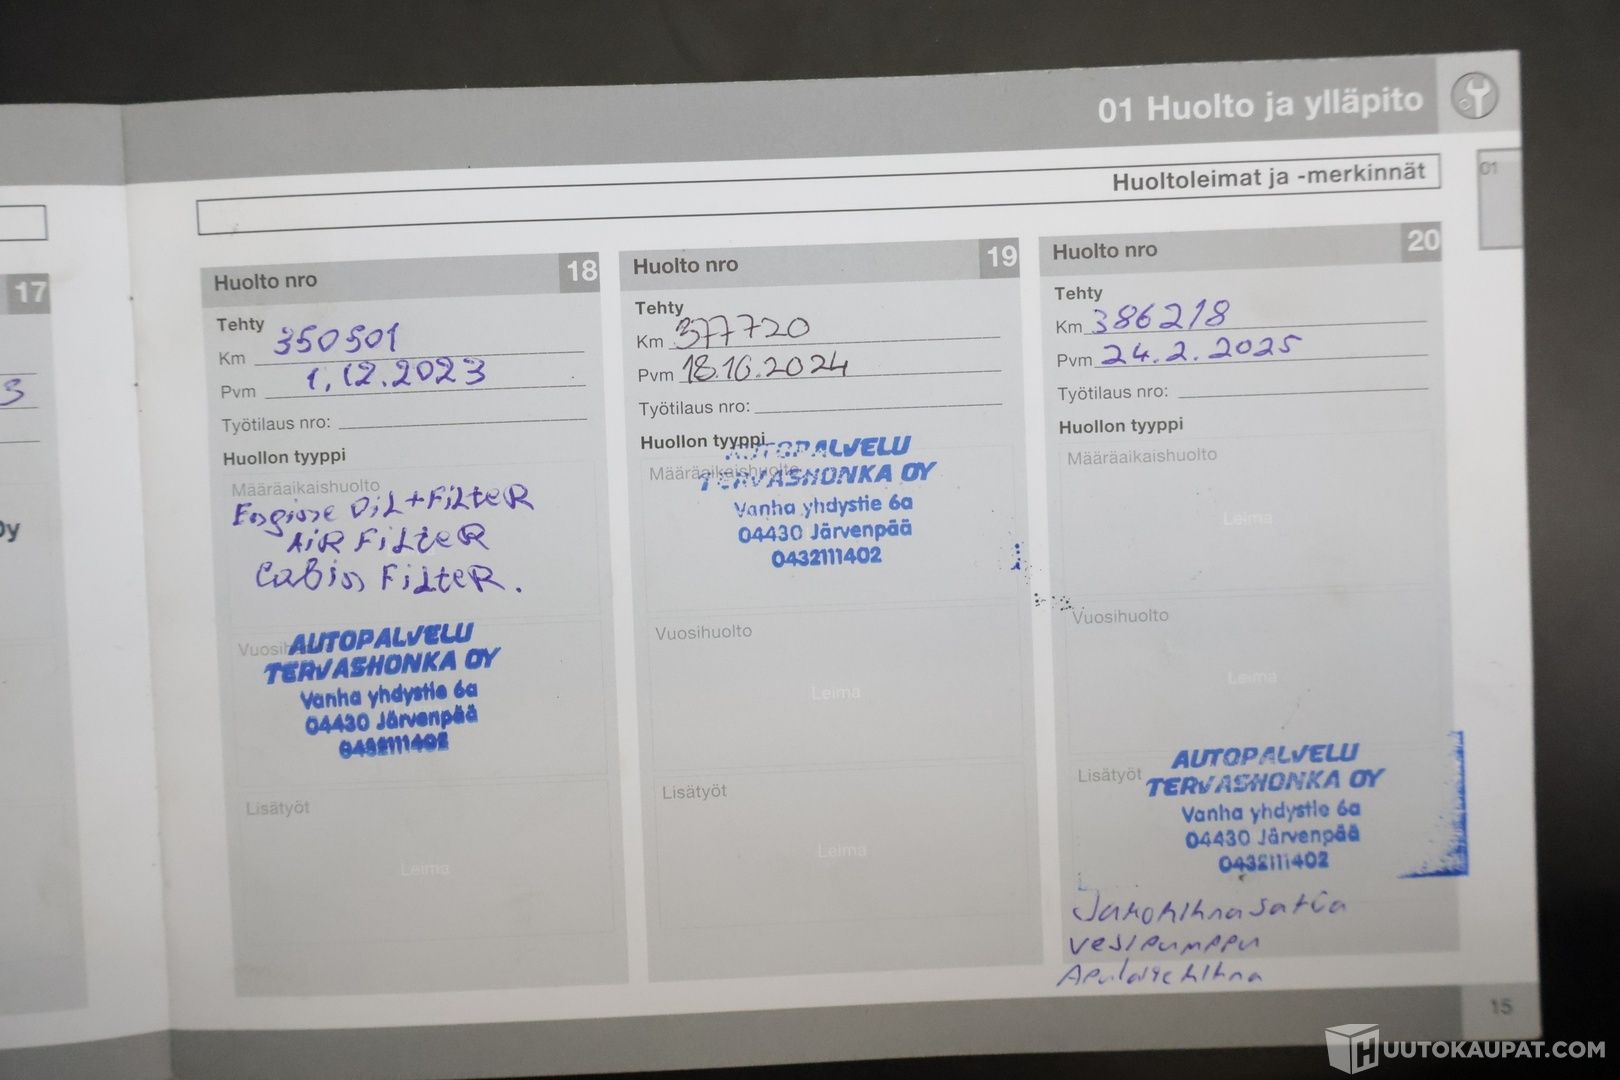 01 Huolto ja ylläpito
Huoltoleimat ja -merkinnät
01
17
3
Oy
Huolto nro 18
Tehty
Km 350501
Pvm 1.12.2023
Työtilaus nro:
Huollon tyyppi
Määräaikaishuolto
Engine OiL+FiLteR
AiR FiLteR
Cabin FiLteR.
AUTOPALVELU
TERVASHONKA OY
Vanha yhdystie 6a
04430 Järvenpää
0432111402
Lisätyöt
Leima
Huolto nro 19
Tehty
Km 377720
Pvm 18.10.2024
Työtilaus nro:
Huollon tyyppi
Määräaikaishuolto
AUTOPALVELU
TERVASHONKA OY
Vanha yhdystie 6a
04430 Järvenpää
0432111402
Vuosihuolto
Leima
Lisätyöt
Leima
Huolto nro 20
Tehty
Km 386218
Pvm 24.2.2025
Työtilaus nro:
Huollon tyyppi
Määräaikaishuolto
Leima
Vuosihuolto
Leima
Lisätyöt
AUTOPALVELU
TERVASHONKA OY
Vanha yhdystie 6a
04430 Järvenpää
0432111402
Jakohihnasarja
vesipumppu
Apulaitehihna
15
HUUTOKAUPAT.COM